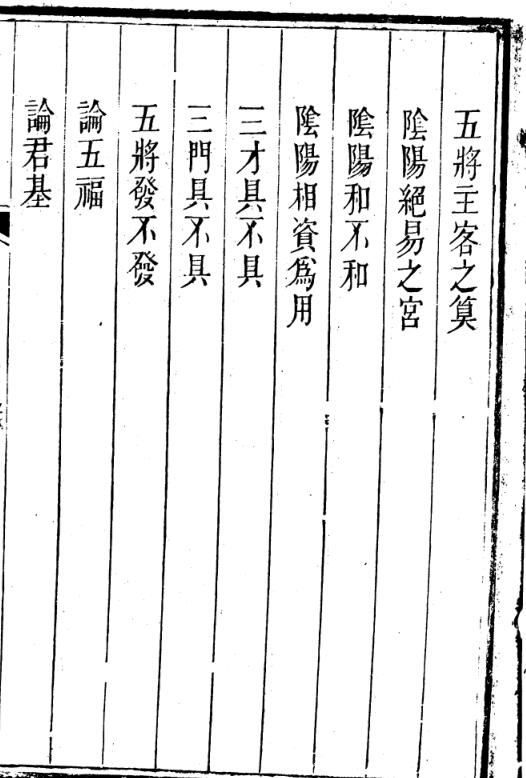 五將主客之筭
陰陽絕易之宮
陰陽和不和
陰陽相資爲用
三才具不具
三門具不具
五將發不發
論五福
論君基